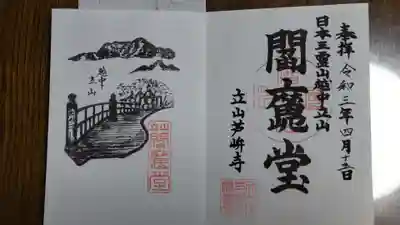 奉拝 令和三年四月十五日
日本三霊山越中立山
閻魔堂
立山芦峅寺
越中
立山
閻魔堂